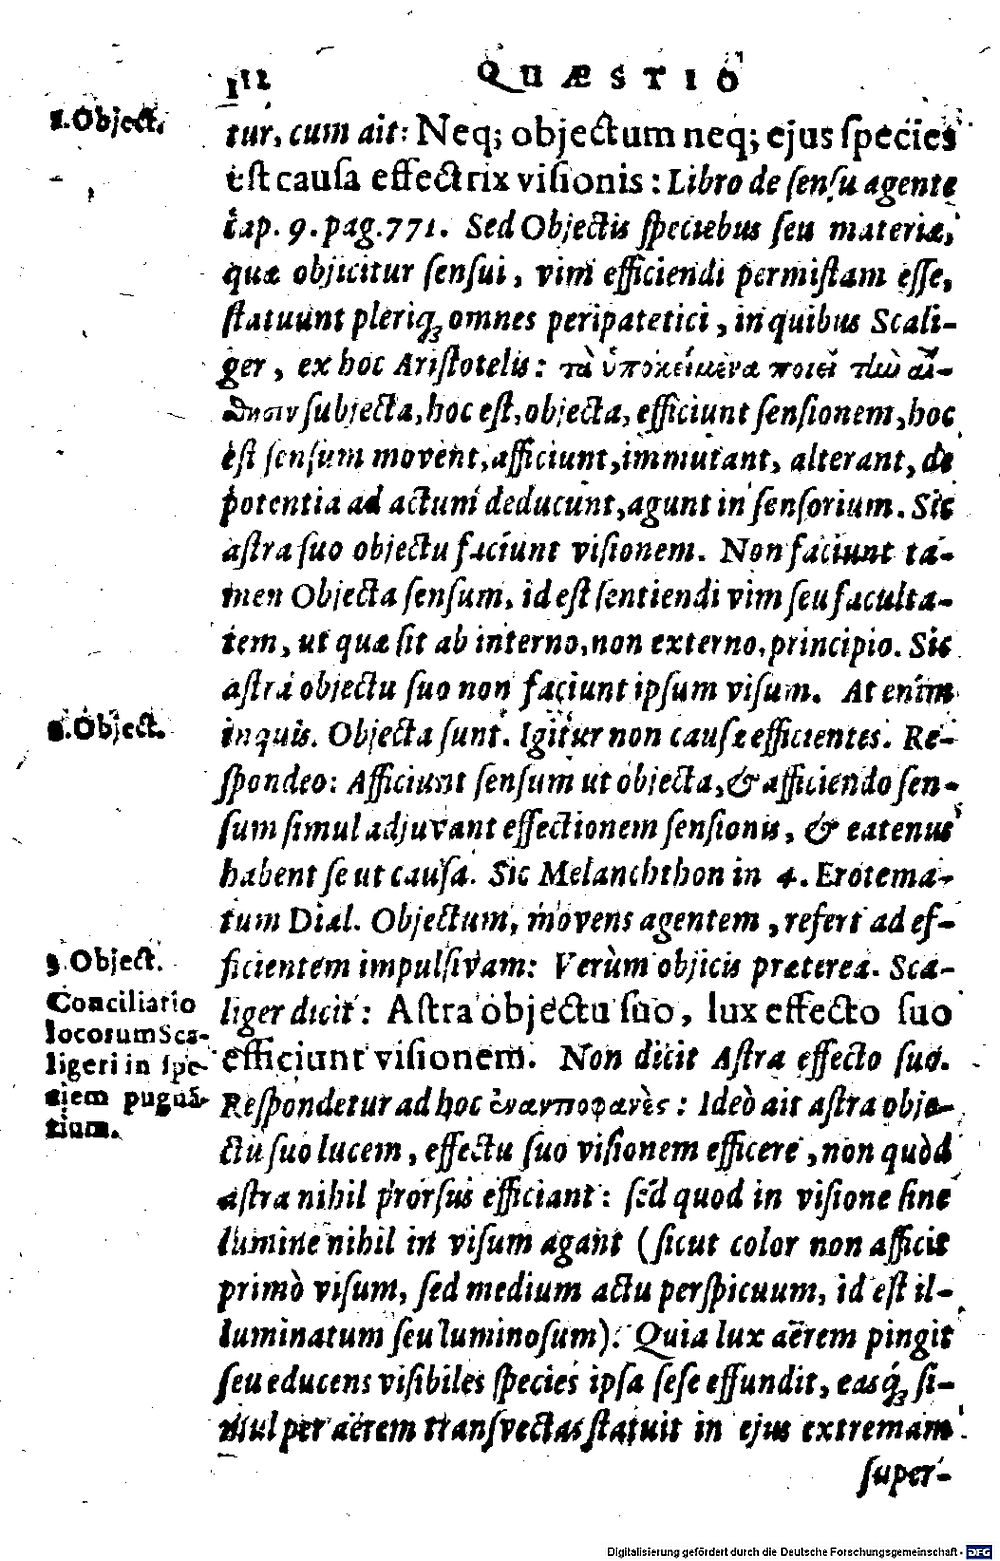 112 QUÆSTIO
1. Object.
tur, cum ait: Neq; objectum neq; ejus ſpecies
eſt cauſa effectrix viſionis: Libro de ſenſu agente
cap. 9. pag. 771. Sed Objectis ſpeciebus ſeu materiæ,
quæ objicitur ſenſui, vim efficiendi permiſtam eſſe,
ſtatuunt pleriq; omnes peripatetici, in quibus Scali-
ger, ex hoc Ariſtotelis: τὰ ὑποκείμενα ποιεῖ τὴν αἴ-
σθησιν ſubjecta, hoc eſt, objecta, efficiunt ſenſionem, hoc
eſt ſenſum movent, afficiunt, immutant, alterant, de
potentia ad actum deducunt, agunt in ſenſorium. Sic
aſtra ſuo objectu faciunt viſionem. Non faciunt ta-
men Objecta ſenſum, id eſt ſentiendi vim ſeu faculta-
tem, ut quæ ſit ab interno, non externo, principio. Sic
aſtra objectu ſuo non faciunt ipſum viſum. At enim
Object.
inquis. Objecta ſunt. Igitur non cauſæ efficientes. Re-
ſpondeo: Afficiunt ſenſum ut objecta, & afficiendo ſen-
ſum ſimul adjuvant effectionem ſenſionis, & eatenus
habent ſe ut cauſa. Sic Melanchthon in 4. Erotema-
tum Dial. Objectum, movens agentem, refert ad ef-
3. Object.
ficientem impulſivam: Verùm objicis præterea. Sca-
Conciliatio
locorum Sca-
ligeri in ſpe-
ciem pugnã-
tium.
liger dicit: Aſtra objectu ſuo, lux effecto ſuo
efficiunt viſionem. Non dicit Aſtra effecto ſuo.
Reſpondetur ad hoc ἐναντιοφανὲς: Ideò ait aſtra obje-
ctu ſuo lucem, effectu ſuo viſionem efficere, non quòd
aſtra nihil prorſus efficiant: ſed quod in viſione ſine
lumine nihil in viſum agant (ſicut color non afficit
primò viſum, ſed medium actu perſpicuum, id eſt il-
luminatum ſeu luminoſum). Quia lux aërem pingit
ſeu educens viſibiles ſpecies ipſa ſeſe effundit, easq́; ſi-
mul per aërem transvectas ſtatuit in ejus extremam
ſuper-
Digitalisierung gefördert durch die Deutsche Forschungsgemeinschaft - DFG